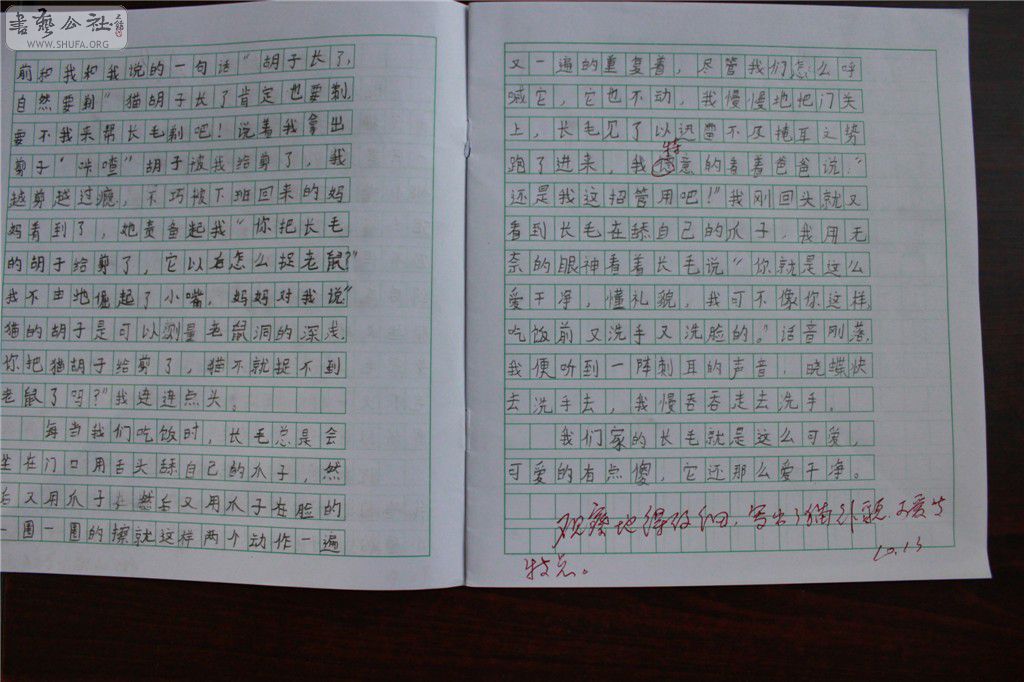 書藝公社
WWW.SHUFA.ORG
前和我和我说的一句话“胡子长了,
自然要剃”猫胡子长了肯定也要剃,
要不我来帮长毛剃吧！说着我拿出
剪子“咔喳”胡子被我给剪了，我
越剪越过瘾，不巧被下班回来的妈
妈看到了，她责备起我“你把长毛
的胡子给剪了，它以后怎么捉老鼠?”
我不由地撅起了小嘴，妈妈对我说“
猫的胡子是可以测量老鼠洞的深浅,
你把猫胡子给剪了，猫不就捉不到
老鼠了吗?”我连连点头。
每当我们吃饭时，长毛总是会
坐在门口用舌头舔自己的爪子，然
后又用爪子在然后又用爪子在脸的
一圈一圈的擦就这样两个动作一遍
又一遍的重复着，尽管我们怎么呼
喊它，它也不动，我慢慢地把门关
上，长毛见了以迅雷不及掩耳之势
跑了进来，我意的看着爸爸说：“
还是我这招管用吧！”我刚回头就又
看到长毛在舔自己的爪子，我用无
奈的眼神看着长毛说“你就是这么
爱干净，懂礼貌，我可不像你这样,
吃饭前又洗手又洗脸的。”话音刚落,
我便听到一阵刺耳的声音，晓蝶快
去洗手去，我慢吞吞走去洗手。
我们家的长毛就是这么可爱，
可爱的有点傻，它还那么爱干净。
观察地得仔细，写出了猫外貌、可爱等
特点。
10.13